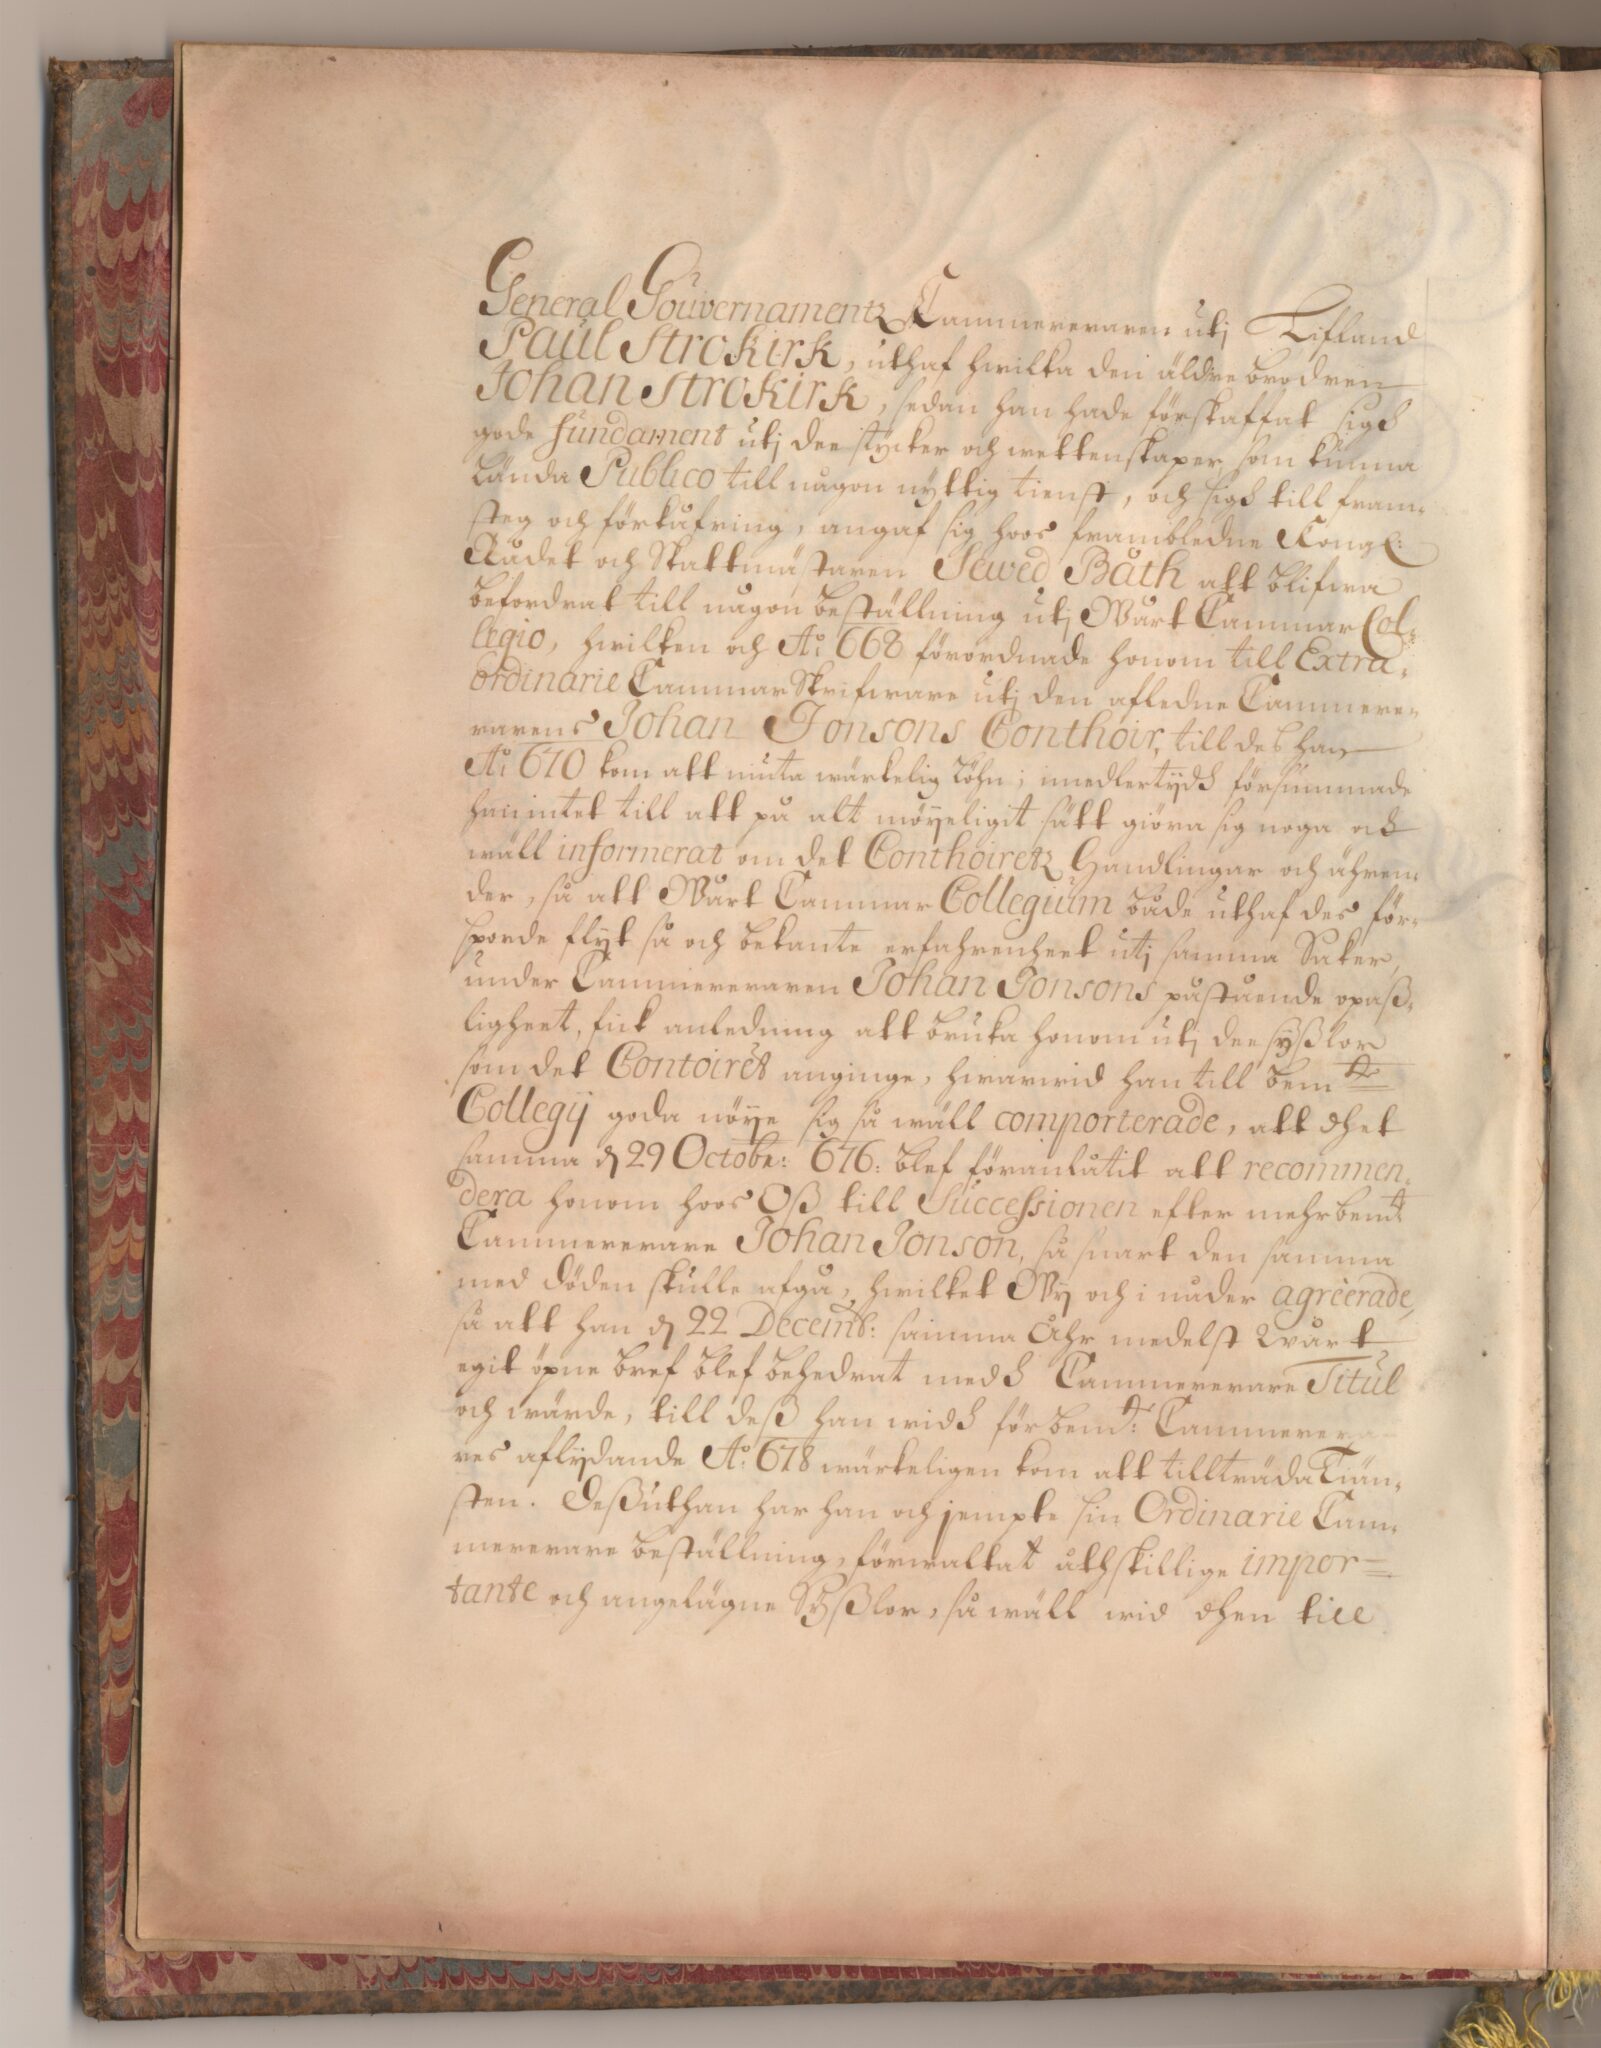 General Gouvernamentz Cammereraren utj Lifland
Paul Strokirk, uthaf hwilka den äldre brodren
Johan Strokirk, sedan han hade förskaffat sigh
gode fundament utj dee stycker och wettenskaper, som kunna
lända Publico till någon nyttig tienst, och sigh till fram-
steg och förkåfring, angaf sig hoos framledne Kongl:
Rådet och Skattmästaren Sewed Bååth att blifwa
befordrat till någon beställning utj Wårt Cammar Col-
legio, hwilken och Ao: 668 förordnade honom till Extra-
ordinarie Cammar Skrifware utj den afledne Cammere-
rarens Johan Jonsons Conthoir, till des han
Ao: 670 kom att niuta wärkelig löhn; imedlertijdh försummade
han intet till att på alt möyeligit sätt giöra sig noga och
wäll informerat om det Conthoiretz Handlingar och ähren-
der, så att Wårt Cammar Collegium både uthaf des för-
sporde flyt så och bekante erfahrenheet utj samma Saker,
under Cammereraren Johan Jonsons påstående opaß-
ligheet, fick anledning att bruka honom utj dee syßlor
som det Contoiret anginge, hwarwid han till bemte
Collegij goda nöye sig så wäll comporterade, att dhet
samma d 29 Octobr: 676: blef föranlåtit att recommen-
dera honom hoos Oß till Successionen efter mehrbemt
Cammererare Johan Jonson, så snart den samma
med döden skulle afgå, hwilket Wy och i nåder agreerade,
så att han d 22 Decemb: samma åhr medelst Wårt
egit öpne bref blef behedrat medh Cammererare Titul
och wärde, till deß han widh förbemte: Cammerera-
res aflydande Ao: 678 wärkeligen kom att tillträda Tiän-
sten. Deßuthan har han och jempte sin Ordinarie Cam-
mererare beställning, förwaltat åthskillige impor-
tante och angelägne Syßlor, så wäll wid dhen till